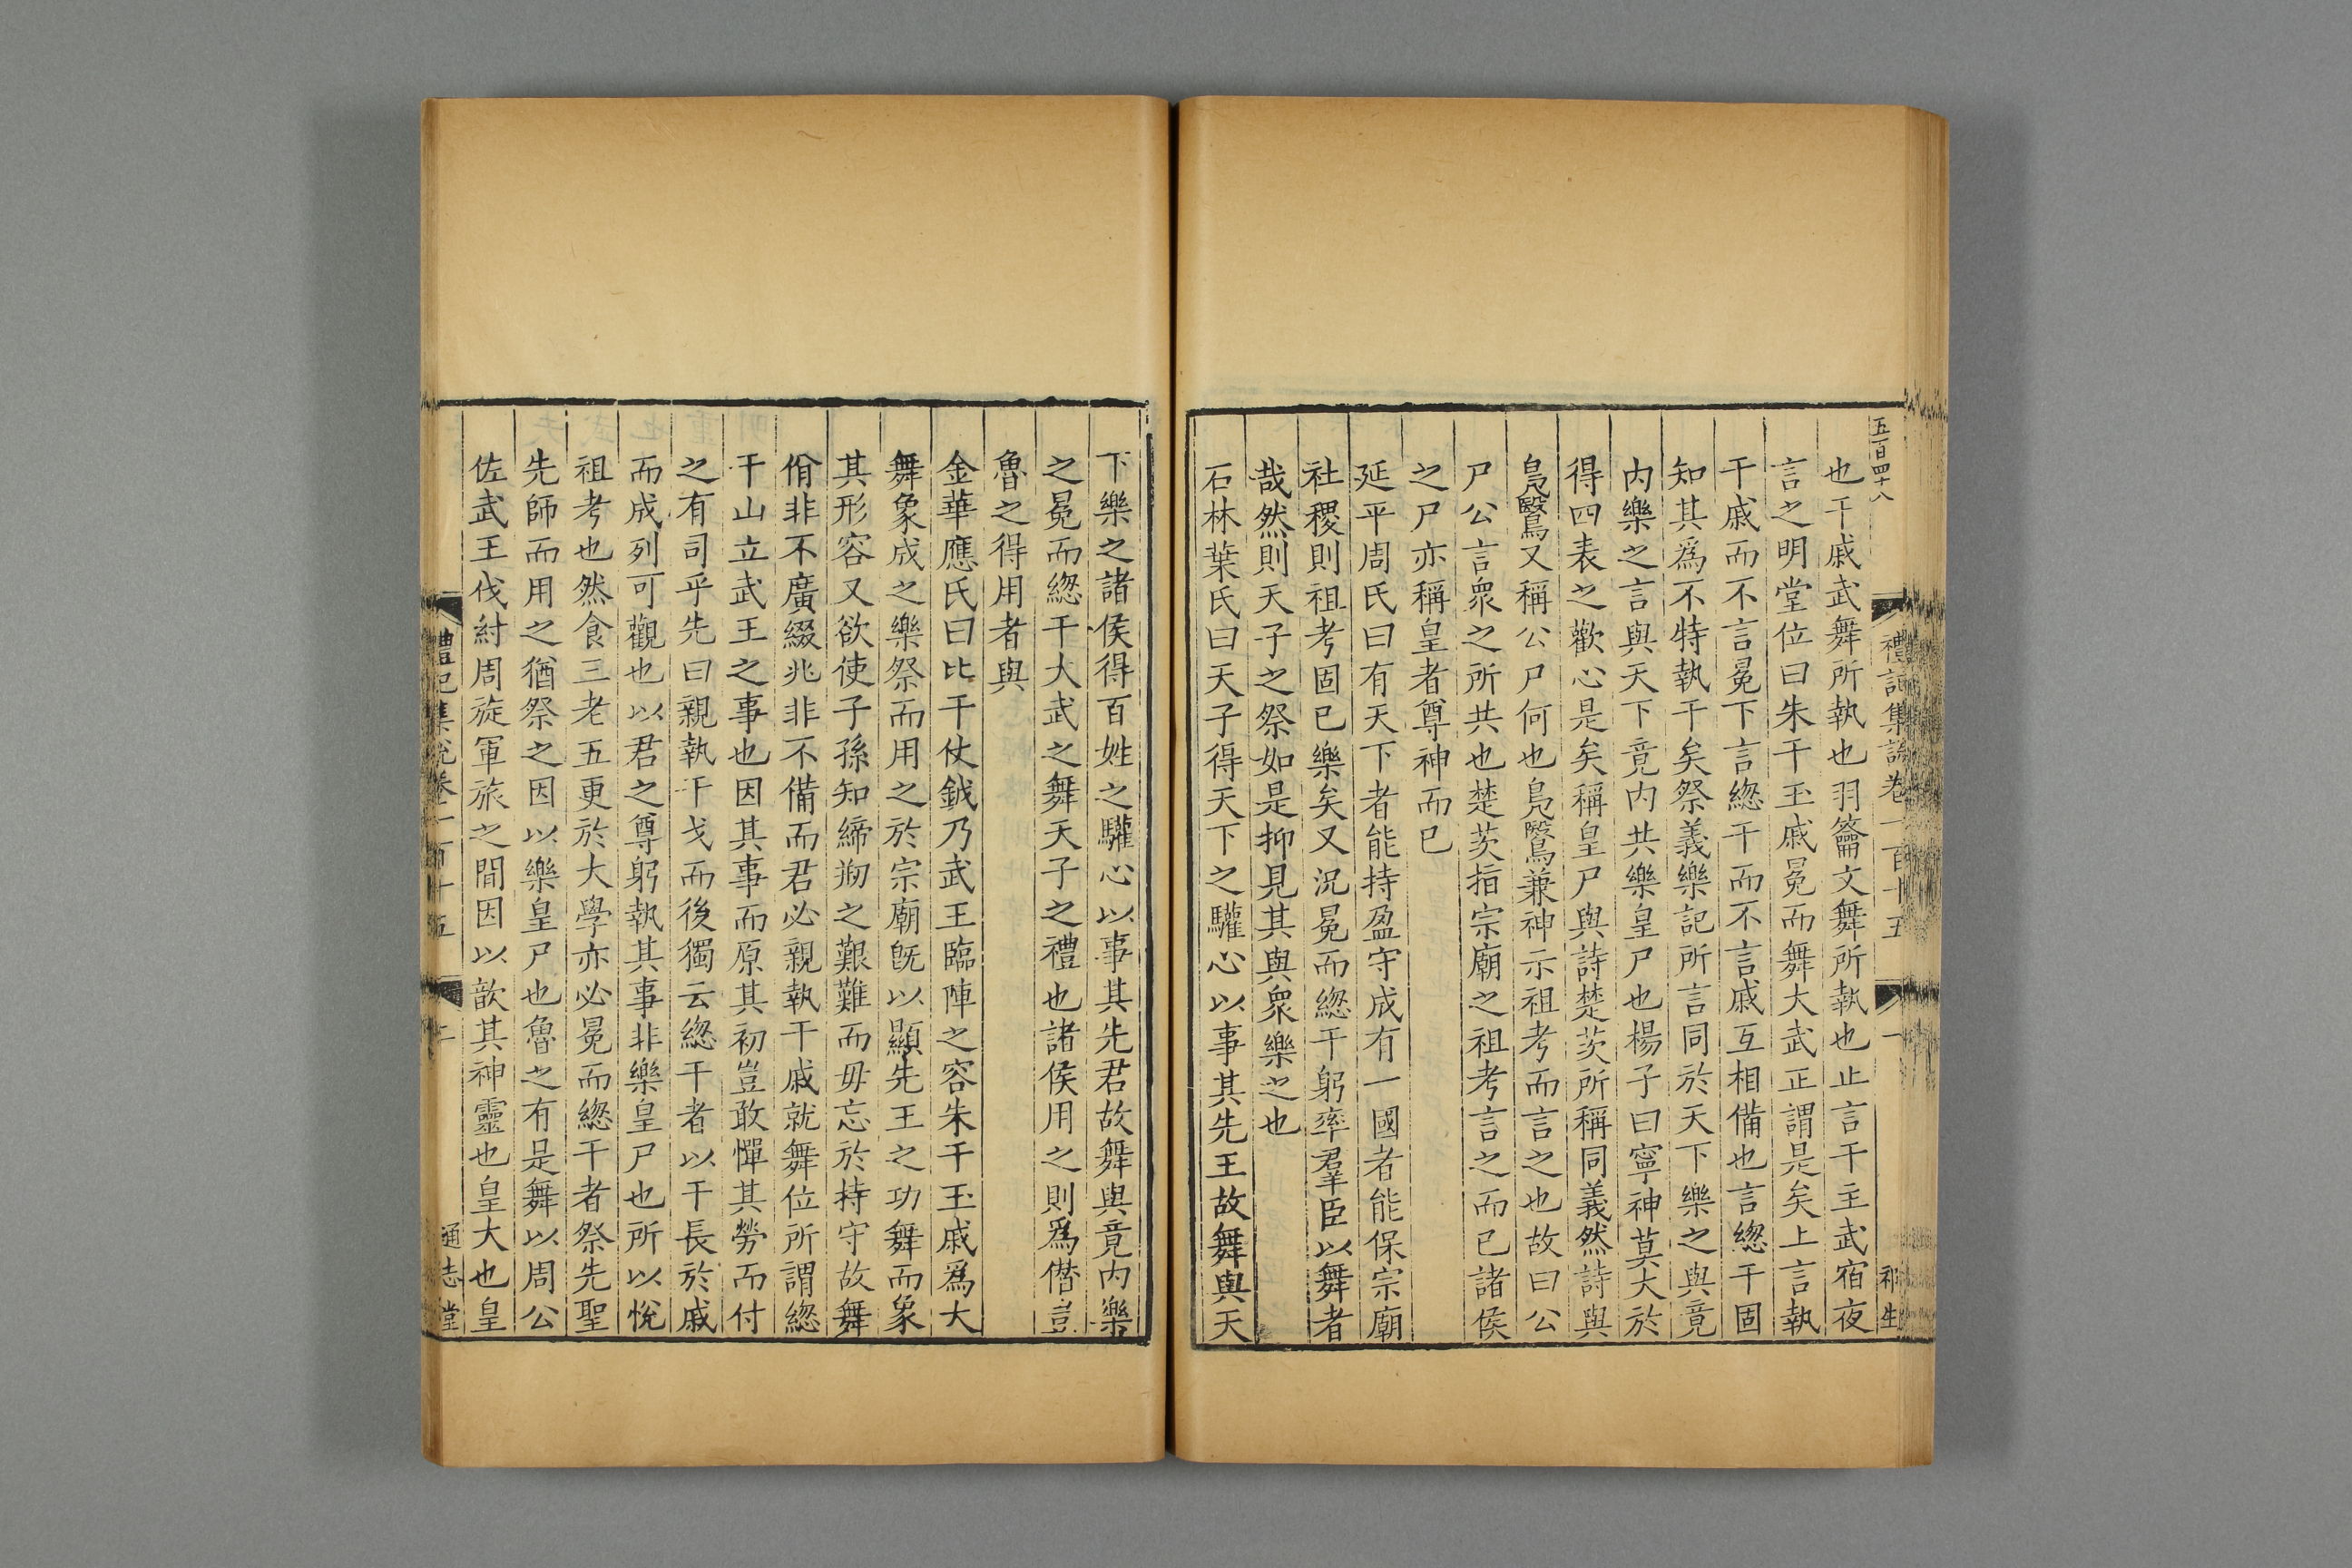 五百四十八
禮記集說卷一百十五
一
祁生
也干戚武舞所執也羽籥文舞所執也止言干主武宿夜
言之明堂位曰朱干玉戚冕而舞大武正謂是矣上言執
干戚而不言冕下言緫干而不言戚互相備也言緫干固
知其爲不特執干矣祭義樂記所言同於天下樂之與竟
內樂之言與天下竟內共樂皇尸也楊子曰寧神莫大於
得四表之歡心是矣稱皇尸與詩楚茨所稱同義然詩與
鳬鷖又稱公尸何也鳬鷖兼神示祖考而言之也故曰公
尸公言衆之所共也楚茨指宗廟之祖考言之而已諸侯
之尸亦稱皇者尊神而已
延平周氏曰有天下者能持盈守成有一國者能保宗廟
社稷則祖考固已樂矣又況冕而緫干躬率羣臣以舞者
哉然則天子之祭如是抑見其與衆樂之也
石林葉氏曰天子得天下之驩心以事其先王故舞與天
下樂之諸侯得百姓之驩心以事其先君故舞與竟内樂
之冕而緫干大武之舞天子之禮也諸侯用之則爲僭豈
魯之得用者與
金華應氏曰比干仗鉞乃武王臨陣之容朱干玉戚爲大
舞象成之樂祭而用之於宗廟旣以顯先王之功舞而象
其形容又欲使子孫知締刱之艱難而毋忘於持守故舞
佾非不廣綴兆非不備而君必親執干戚就舞位所謂緫
干山立武王之事也因其事而原其初豈敢憚其勞而付
之有司乎先曰親執干戈而後獨云緫干者以干長於戚
而成列可觀也以君之尊躬執其事非樂皇尸也所以悅
祖考也然食三老五更於大學亦必冕而緫干者祭先聖
先師而用之猶祭之因以樂皇尸也魯之有是舞以周公
佐武王伐紂周旋軍旅之間因以歆其神靈也皇大也皇
禮記集說卷一百十五
二
通志堂